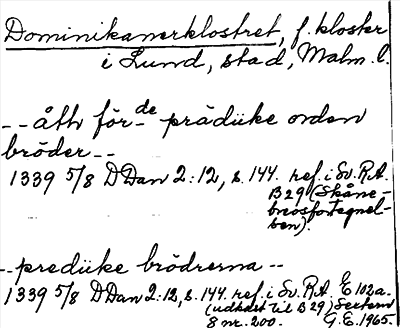 Dominikanerklostret, f. kloster
i Lund, stad, Malm. l.
-- åth för- de prädiike orden
bröder --
1339 5/8 DDan 2:12, s. 144. ref. i Sv. R.A.
B 29 (Skåne-
brevsfortegnel-
sen).
-- prediike brödrerna --
1339 5/8 DDan 2:12, s. 144. ref. i Sv. R.A. E 102a.
(udkast til B 29) Sectern
8 nr. 200. G.E. 1965.